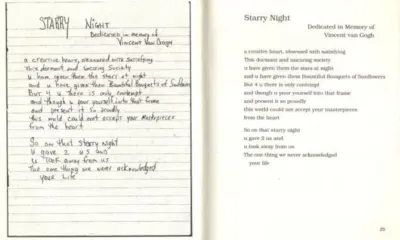 STARRY NIGHT
Dedicated in memory of
VINCENT VAN GOGH
a creative heart, obsessed with satisfying
This dormant and uncaring society
u have given them the stars at night
and u have given them Bountiful Bouquets of Sunflowers
But 4 u there is only contempt
and though u pour yourself into that frame
and present it so proudly
this world could not accept your Masterpieces
from the heart
So on that starry night
u gave 2 us and
u took away from us
The one thing we never acknowledged
your Life
Starry Night
Dedicated in Memory of
Vincent van Gogh
a creative heart, obsessed with satisfying
This dormant and uncaring society
u have given them the stars at night
and u have given them Bountiful Bouquets of Sunflowers
But 4 u there is only contempt
and though u pour yourself into that frame
and present it so proudly
this world could not accept your masterpieces
from the heart
So on that starry night
u gave 2 us and
u took away from us
The one thing we never acknowledged
your life